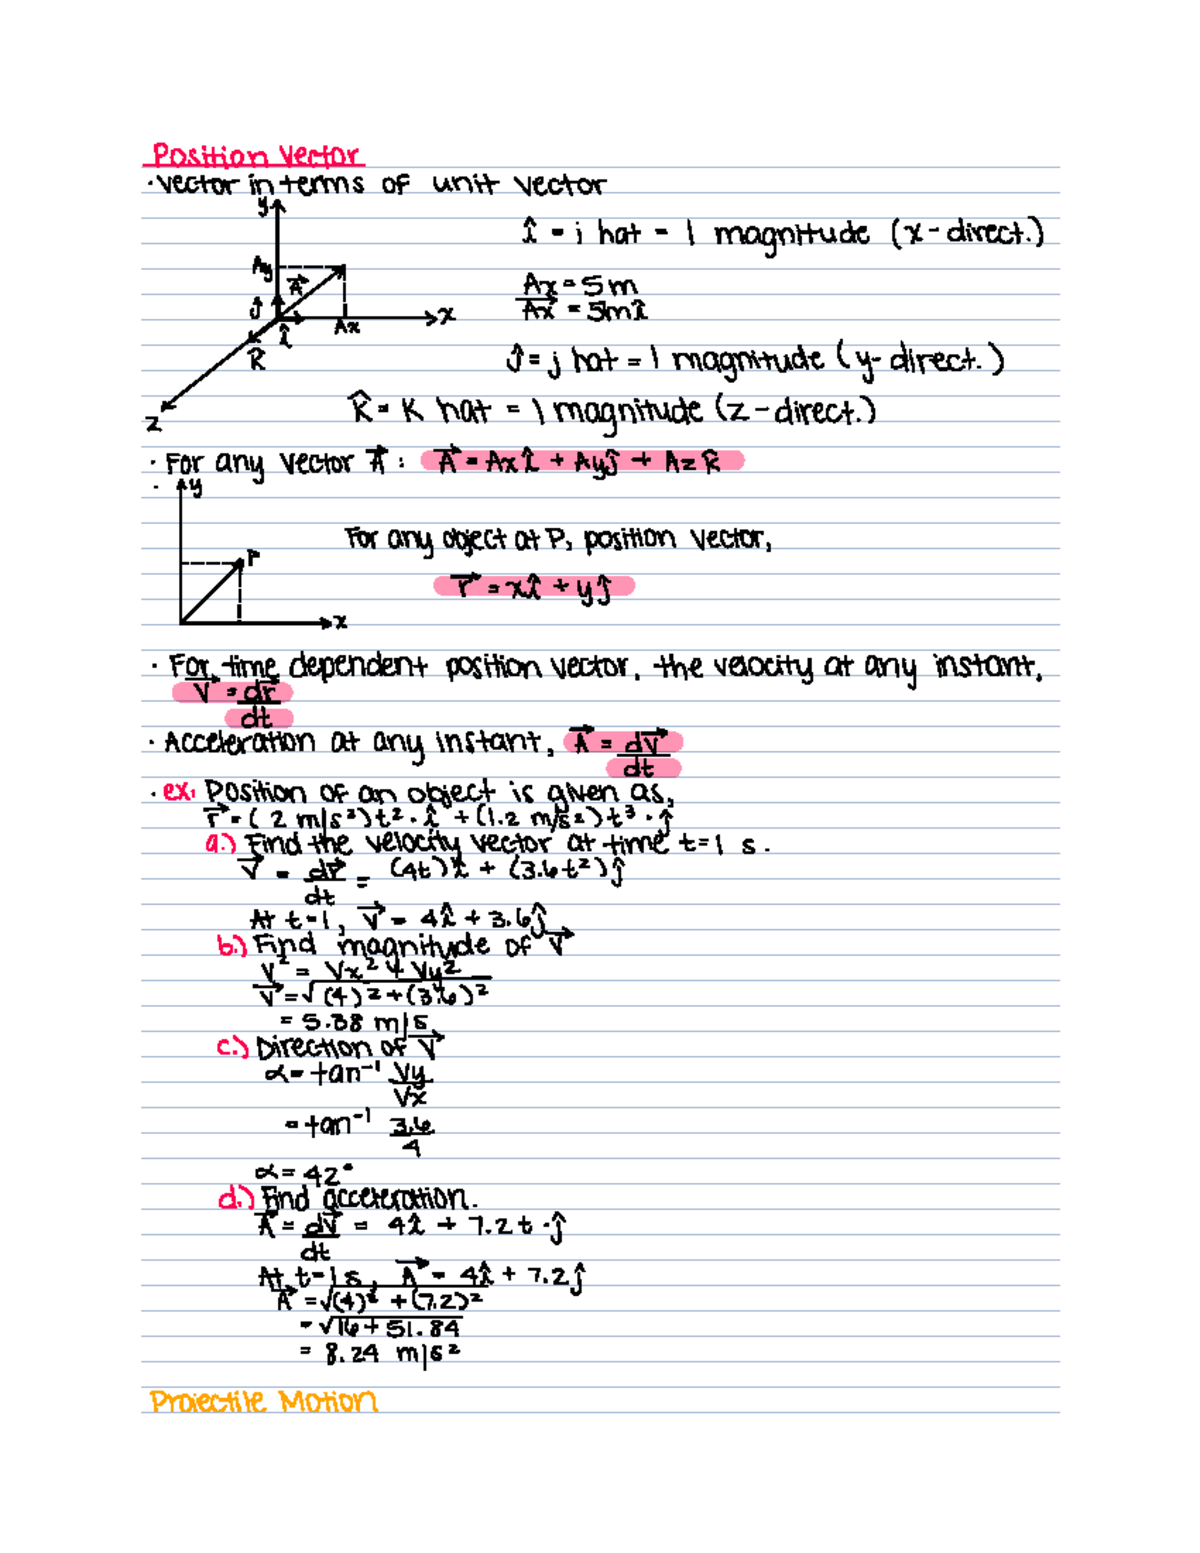 Position Vector
· Vector in terms of unit vector
y
î = i hat = 1 magnitude (x-direct.)
Ay
A⃗
Ax = 5m
A⃗x = 5mî
ĵ
x
î
Ax
k̂
ĵ = j hat = 1 magnitude (y-direct.)
z
k̂ = K hat = 1 magnitude (z-direct.)
· For any vector A⃗ : A⃗ = Axî + Ayĵ + Az k̂
· y
For any object at P, position vector,
P
r⃗ = xî + yĵ
x
· For time dependent position vector, the velocity at any instant,
V⃗ = dr⃗
dt
· Acceleration at any instant, A⃗ = dV⃗
dt
· ex: Position of an object is given as,
r⃗ = (2 m/s²)t² · î + (1.2 m/s²)t³ · ĵ
a.) Find the velocity vector at time t=1 s.
V⃗ = dr⃗ = (4t)î + (3.6t²)ĵ
dt
At t=1, V⃗ = 4î + 3.6ĵ
b.) Find magnitude of V⃗
V² = Vx² + Vy²
V⃗ = √(4)² + (3.6)²
= 5.38 m/s
c.) Direction of V⃗
α = tan⁻¹ Vy
Vx
= tan⁻¹ 3.6
4
α = 42°
d.) Find acceleration.
A⃗ = dV⃗ = 4î + 7.2t · ĵ
dt
At t=1s, A⃗ = 4î + 7.2ĵ
A⃗ = √(4)² + (7.2)²
= √16 + 51.84
= 8.24 m/s²
Projectile Motion